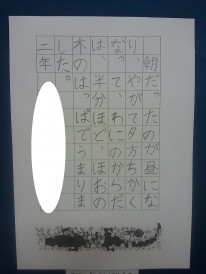 朝だったのが昼にな
り、やがて夕方ちかく
なって、わにのからだ
は、半分ほど、ほおの
木のはっぱでうまりま
した。
二年